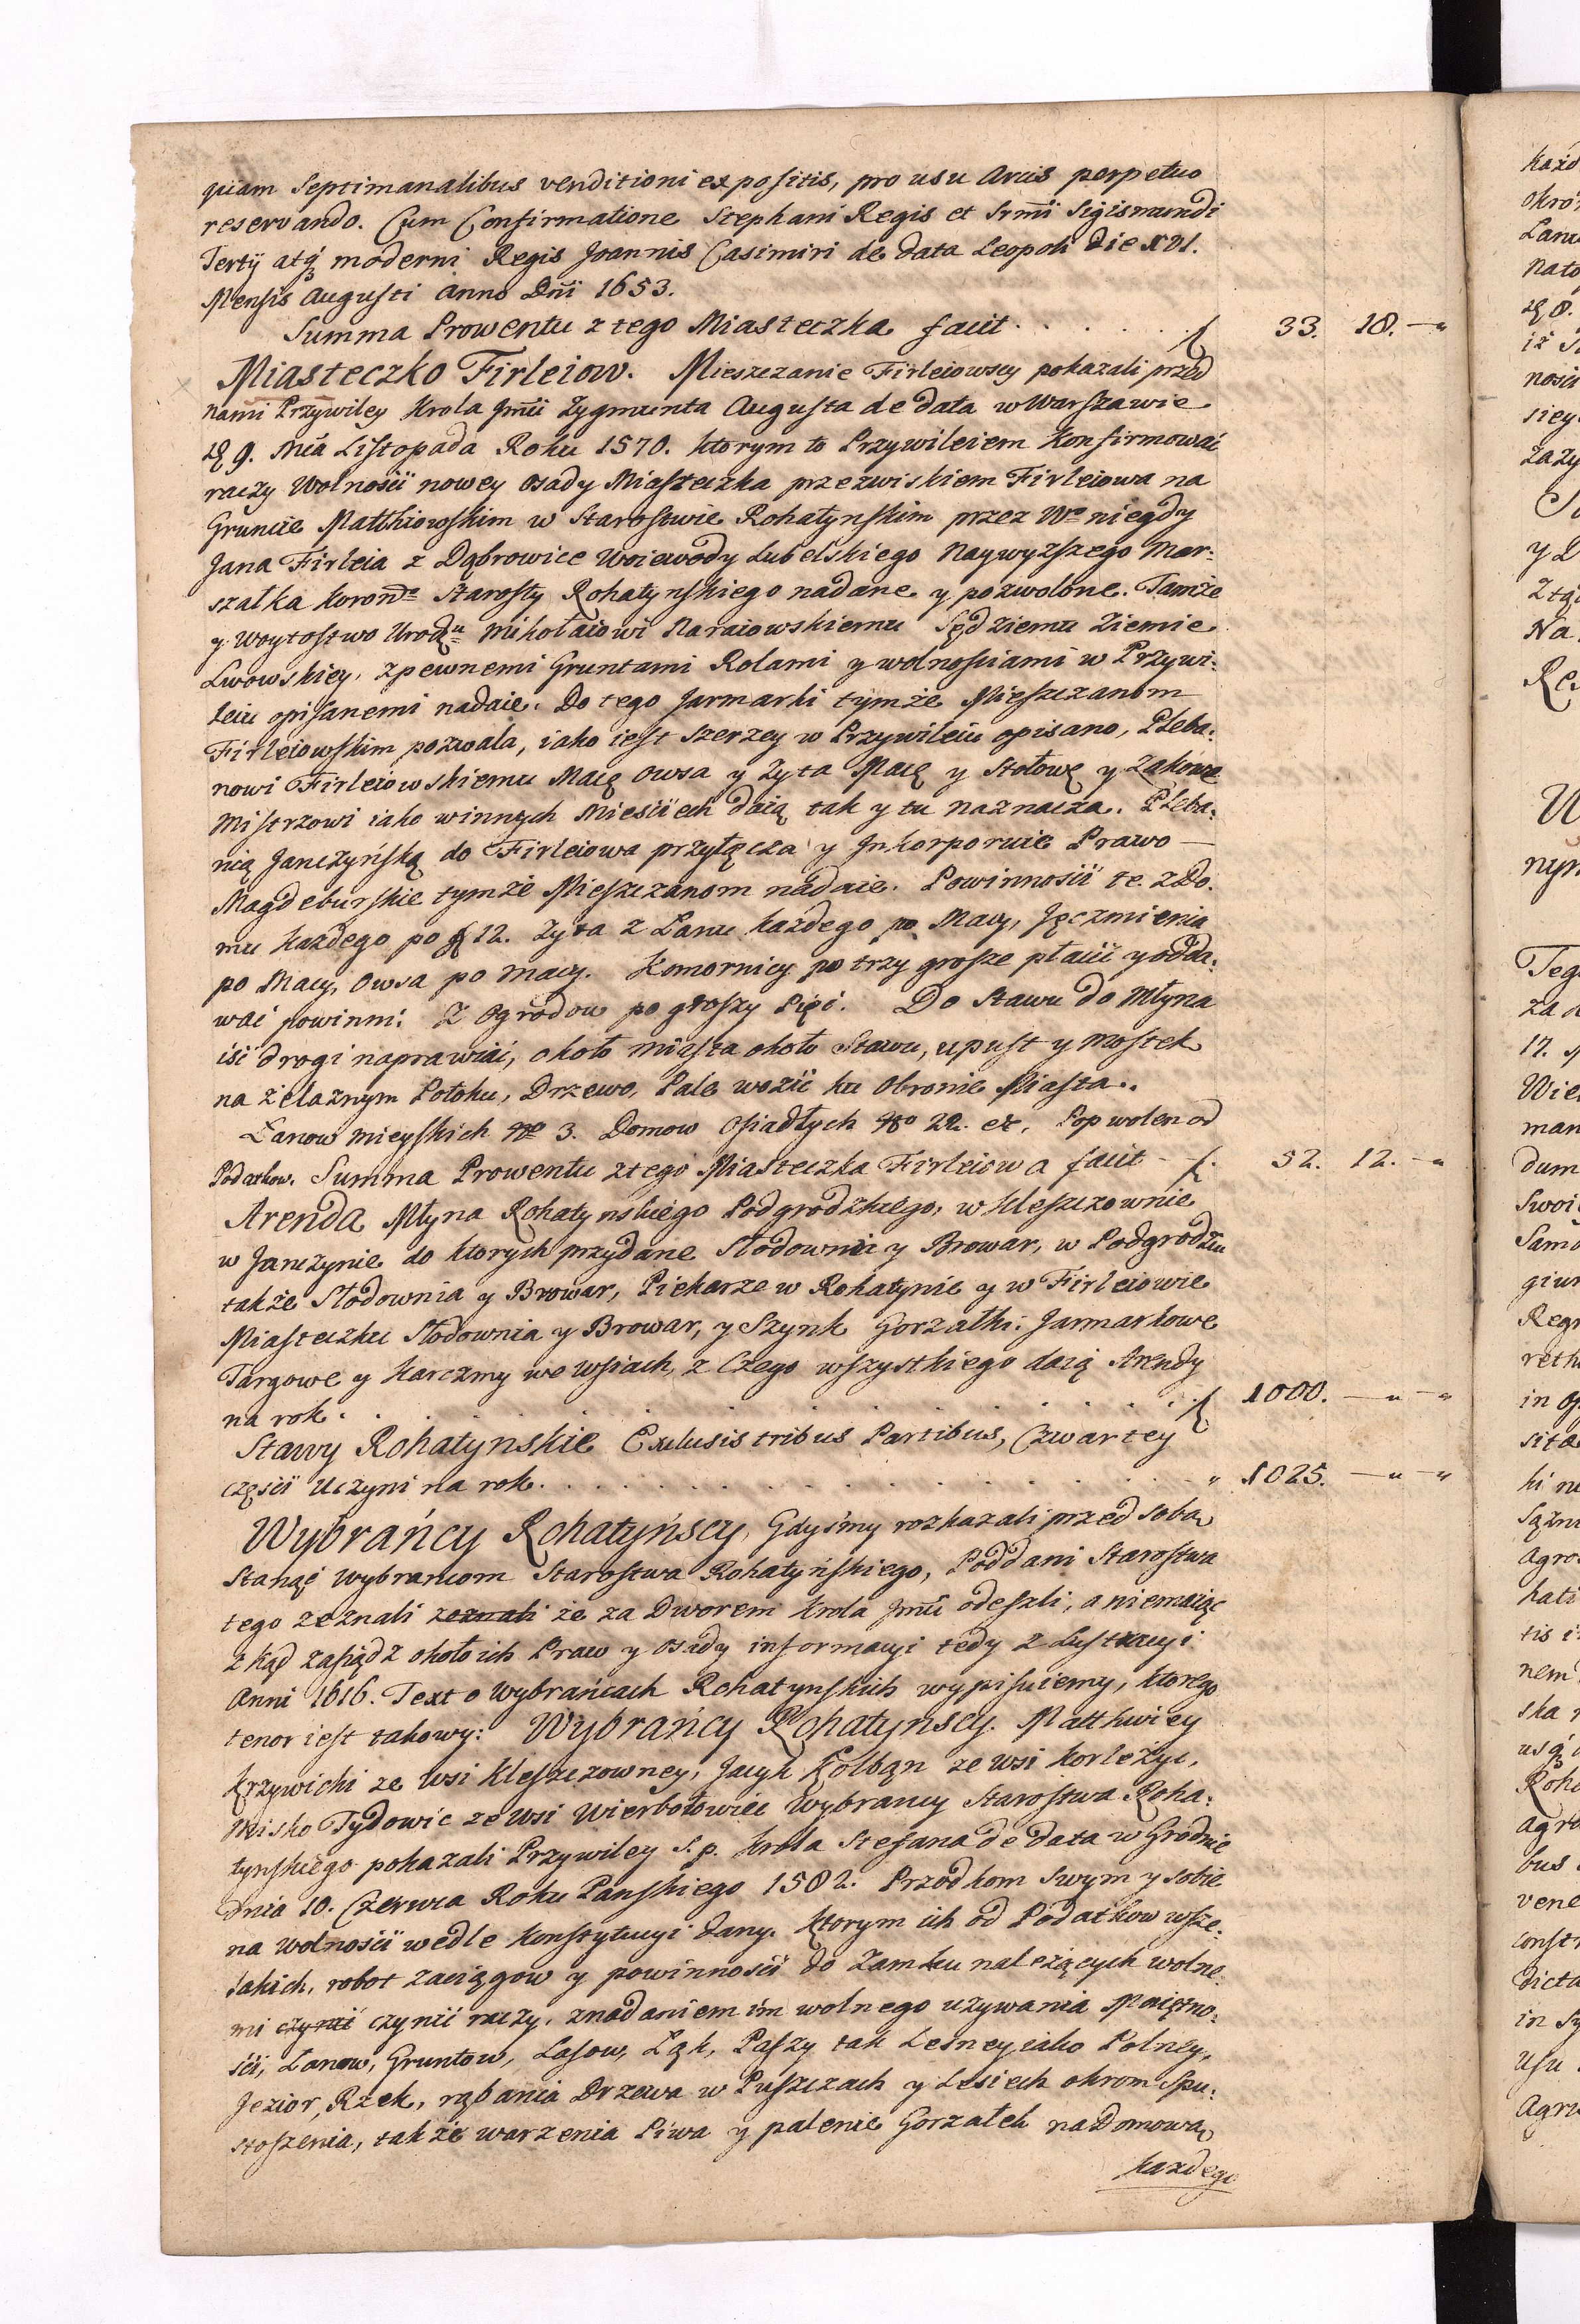 quam Septimanalibus venditioni expositis, pro usu Arcis perpetuo
reservando. Cum Confirmatione Stephani Regis et Srm̃i Sigismundi
Tertij atq₃ moderni Regis Joannis Casimiri de data Leopoli die XVI.
Mensis Augusti Anno Dñi 1653.
Summa Prowentu z tego Miasteczka facit . . . . . . ƒ 33. 18. — "
Miasteczko Firleiow. Mieszczanie Firleiowscy pokazali przed
nami Przywiley Krola Jm̃ci Zygmunta Augusta de data w Warszawie
9. Mca Listopada Roku 1570. ktorym to Przywileiem Konfirmować
raczy Wolności nowey osady Miasteczka przezwiskiem Firleiowa na
Gruncie Matthiowskim w Starostwie Rohatynskim przez W° niegdy
Jana Firleia z Dąbrowice Woiewody Lubelskiego Naywyzszego Mar:
szałka Koron° Starosty Rohatynskiego nadane y pozwolone. Tamże
y Woytostwo Urodz Mikołaiowi Naraiowskiemu Sędziemu Ziemie
Lwowskiey, z pewnemi Gruntami Rolami y wolnosciami w Przywi:
leiu opisanemi nadaie. Do tego Jarmarki tymże Mieszczanom
Firleiowskim pozwala, iako iest szerzey w Przywileiu opisano, Pleba:
nowi Firleiowskiemu Macę owsa y Zyta Macę y Stołowę y Zakowe
Mistrzowi iako w innych Mieściech daią tak y tu naznacza. Pleba:
nią Janczyńską do Firleiowa przyłącza y Inkorporuie Prawo —
Magdeburskie tymże Mieszczanom nadaie. Powinności te. z Do.
mu każdego po g 12. Zyta z Łanu każdego po Macy, Jęczmienia
po Macy, Owsa po Macy. Komornicy po trzy grosze płacić y odda:
wać powinni. Z Ogrodow po groszy Pięć. Do Stawu do Młyna
iść drogi naprawiać, około Miasta około Stawu, upust y mostek
na żelaznym Potoku, Drzewo, Pale wozić ku Obronie Miasta..
Łanow mieyskich No 3. Domow Osiadłych No 22. et. Pop wolen od
Podatkow. Summa Prowentu z tego Miasteczka Firleiowa facit — ƒ. 52. 12. — "
Arenda Młyna Rohatynskiego Podgrodzkiego, w Kleszczownie
w Janczynie do ktorych przydane Słodownia y Browar, w Podgrodziu
także Słodownia y Browar, Piekarze w Rohatynie y w Firleiowie
Miasteczku Słodownia y Browar, y Szynk Gorzałki. Jarmarkowe
Targowe y Karczmy we wsiach, z Czego wszystkiego daią Arendy
na rok . . . . . . . . . . . . . . ƒ 1000. — " — "
Stawy Rohatynskie Exclusis tribus Partibus, Czwartey
części Uczyni na rok . . . . . . . . . . . " 1025. — " — "
Wybrańcy Rohatyńscy, Gdysmy rozkazali przed sobą
stanąć wybrancom Starostwa Rohatyńskiego, Poddani Starostwa
tego zeznali zeznali że za Dworem Krola Jm̃ci odeszli, a niemaiąc
z kąd zasiądz około ich Praw y osady informacyi tedy z Lustracyi
Anni 1616. Text o Wybrańcach Rohatynskich wypisuiemy, ktorego
tenor iest takowy: Wybrańcy Rohatynscy. Matthwiey
Krzywicki ze wsi Kleszczowney, Jacyk Kołbąn ze wsi Korleżyc,
Misko Tydowic ze wsi Wierbołowiec Wybrancy Starostwa Roha:
tynskiego pokazali Przywiley S. p. Krola Stefana de Data w Grodnie
dnia 10. Czerwca Roku Panskiego 1582. Przodkom swym y sobie
na wolności wedle Konstytucyi dany. Ktorym ich od Podatkow wsze:
lakich, robot zaciągow y powinności do Zamku należących wolne
mi czynić czynić raczy, z nadaniem im wolnego używania Maiętno:
ści, Łanow, Gruntow, Lasow, Łąk, Paszy tak Leśney iako Polney,
Jezior, Rzek, rąbania Drzewa w Puszczach y Lesiech okrom spu:
stoszenia, także warzenia Piwa y palenie Gorzałek na Domową
każdego